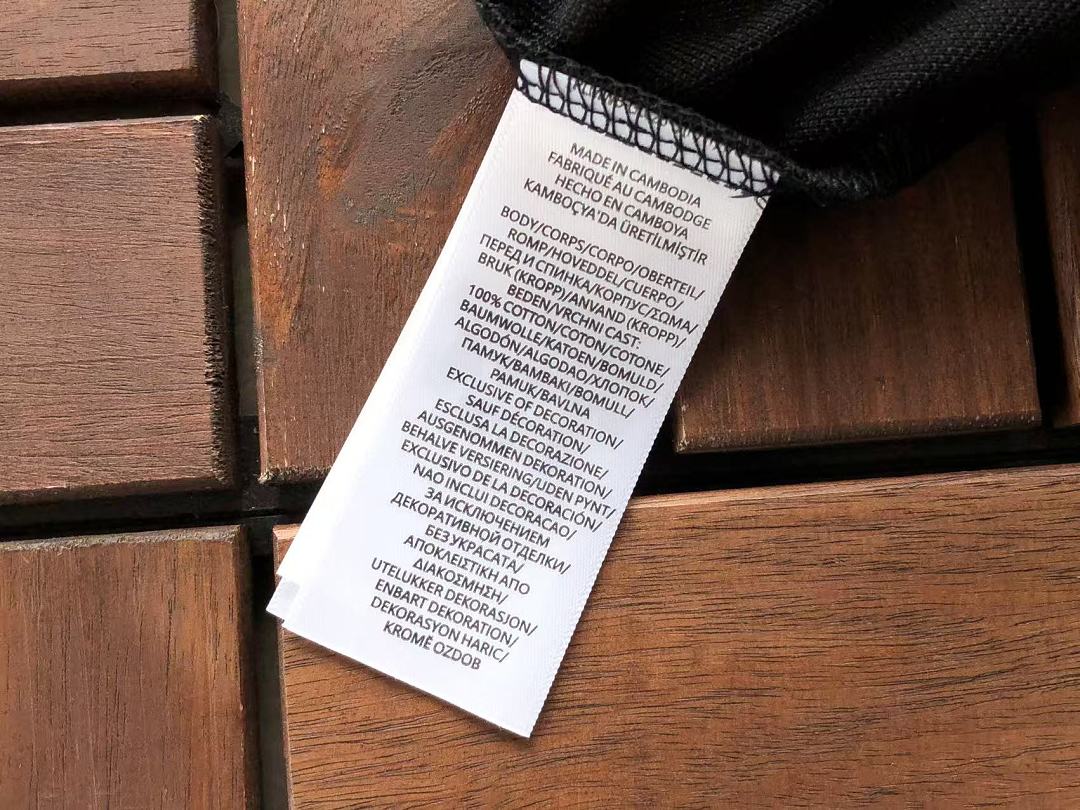 MADE IN CAMBODIA
FABRIQUÉ AU CAMBODGE
HECHO EN CAMBOYA
KAMBOÇYA'DA ÜRETİLMİŞTİR
BODY/CORPS/CORPO/OBERTEIL/
ROMP/HOVEDDEL/CUERPO/
ПЕРЕД И СПИНКА/КОРПУС/ΣΩΜΑ/
BRUK (KROPP)/ANVAND (KROPP)/
BEDEN/VRCHNI CAST:
100% COTTON/COTON/COTONE/
BAUMWOLLE/KATOEN/BOMULD/
ALGODÓN/ALGODAO/ХЛОПОК/
ПАМУК/BAMBAKI/BOMULL/
PAMUK/BAVLNA
EXCLUSIVE OF DECORATION/
SAUF DÉCORATION/
ESCLUSA LA DECORAZIONE/
AUSGENOMMEN DEKORATION/
BEHALVE VERSIERING/UDEN PYNT/
EXCLUSIVO DE LA DECORACIÓN/
NAO INCLUI DECORACAO/
ЗА ИСКЛЮЧЕНИЕМ
ДЕКОРАТИВНОЙ ОТДЕЛКИ/
БЕЗ УКРАСАТА/
ΑΠΟΚΛΕΙΣΤΙΚΗ ΑΠΟ
ΔΙΑΚΟΣΜΗΣΗ/
UTELUKKER DEKORASJON/
ENBART DEKORATION/
DEKORASYON HARIC/
KROMĚ OZDOB